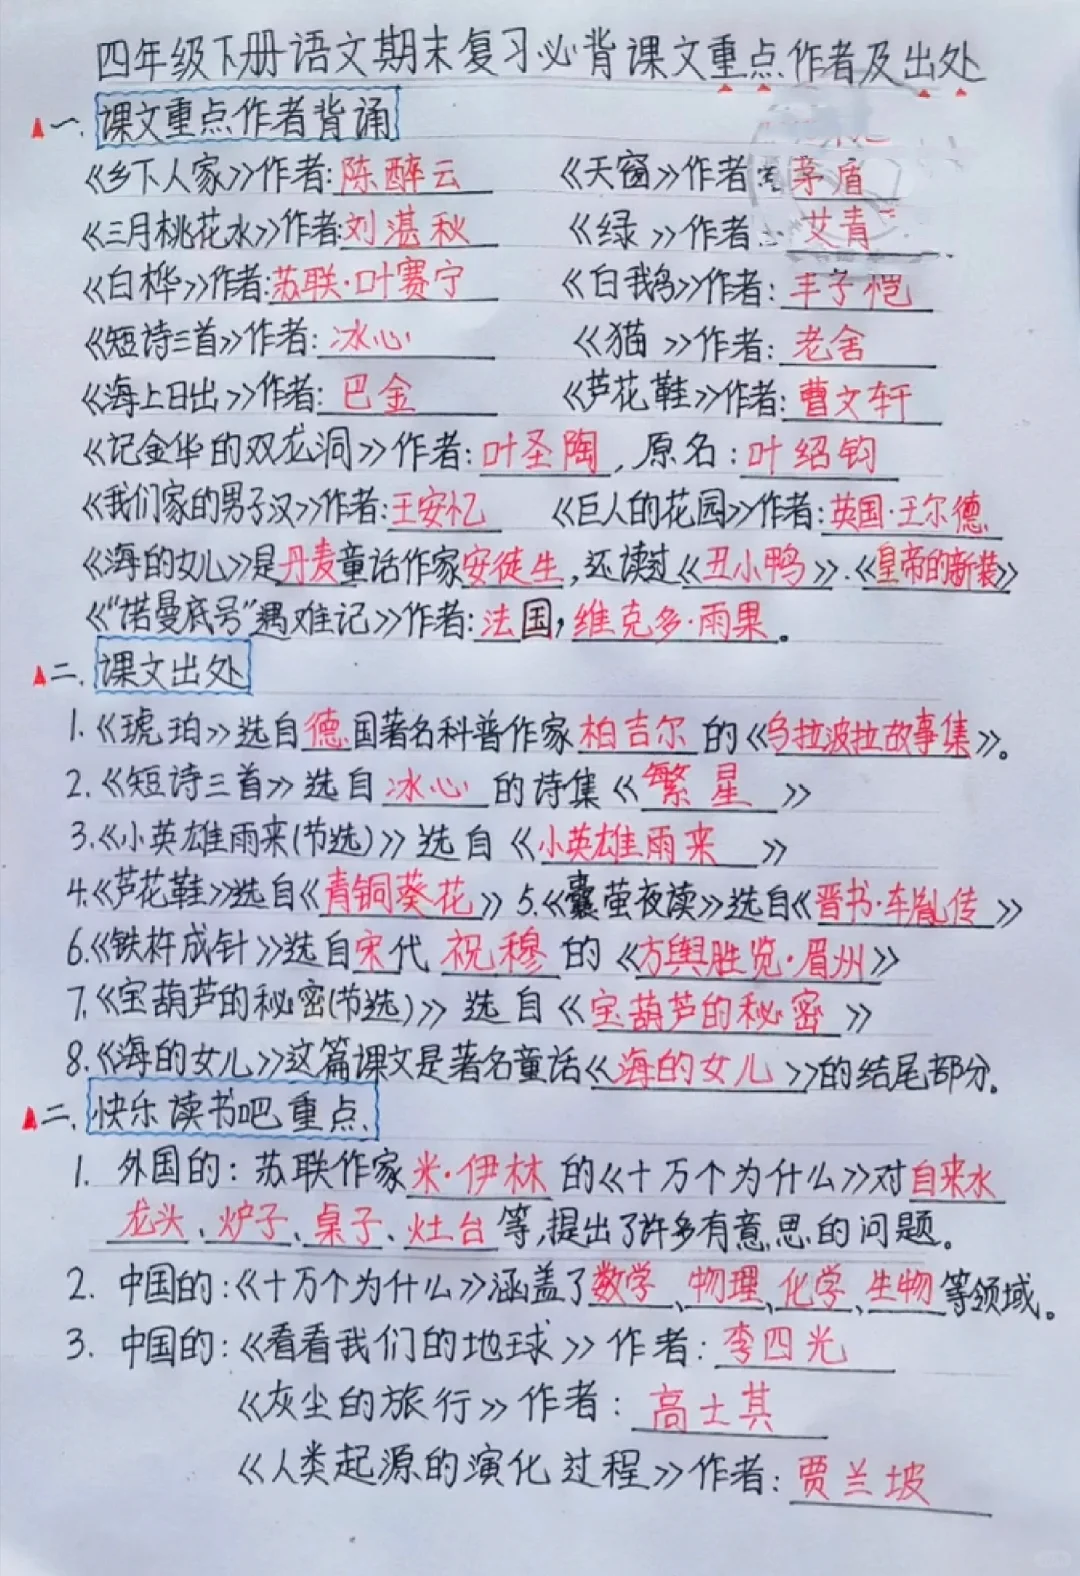 四年级下册语文期末复习必背课文重点作者及出处
一、课文重点作者背诵
《乡下人家》作者:陈醉云 《天窗》作者:茅盾
《三月桃花水》作者:刘湛秋 《绿》作者:艾青
《白桦》作者:苏联·叶赛宁 《白鹅》作者:丰子恺
《短诗三首》作者:冰心 《猫》作者:老舍
《海上日出》作者:巴金 《芦花鞋》作者:曹文轩
《记金华的双龙洞》作者:叶圣陶,原名:叶绍钧
《我们家的男子汉》作者:王安忆 《巨人的花园》作者:英国·王尔德
《海的女儿》是丹麦童话作家安徒生,还读过《丑小鸭》.《皇帝的新装》
《“诺曼底号”遇难记》作者:法国,维克多·雨果。
二、课文出处
1.《琥珀》选自德国著名科普作家柏吉尔的《乌拉波拉故事集》。
2.《短诗三首》选自冰心的诗集《繁星》
3.《小英雄雨来(节选)》选自《小英雄雨来》
4.《芦花鞋》选自《青铜葵花》5.《囊萤夜读》选自《晋书·车胤传》
6.《铁杵成针》选自宋代祝穆的《方舆胜览·眉州》
7.《宝葫芦的秘密(节选)》选自《宝葫芦的秘密》
8.《海的女儿》这篇课文是著名童话《海的女儿》的结尾部分。
二、快乐读书吧重点
1. 外国的:苏联作家米·伊林的《十万个为什么》对自来水
龙头、炉子、桌子、灶台等,提出了许多有意思的问题。
2. 中国的:《十万个为什么》涵盖了数学、物理、化学、生物等领域。
3. 中国的:《看看我们的地球》作者:李四光
《灰尘的旅行》作者:高士其
《人类起源的演化过程》作者:贾兰坡